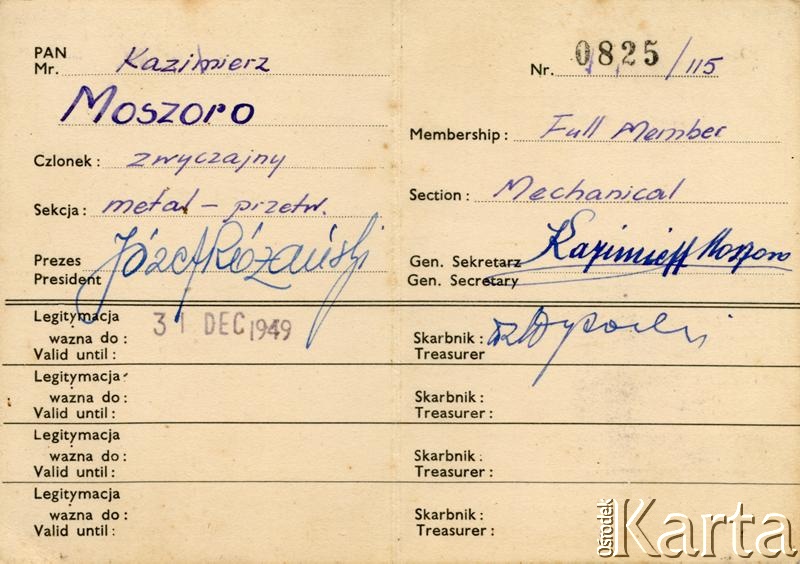 PAN
Mr. Kazimierz
Nr. 0825/115
Moszoro
Membership: Full Member
Członek: zwyczajny
Section: Mechanical
Sekcja: metal-przetw.
Prezes
President
Józef Różański
Gen. Sekretarz
Gen. Secretary
Kazimierz Moszoro
Legitymacja
ważna do:
Valid until:
31 DEC 1949
Skarbnik:
Treasurer
Legitymacja
ważna do:
Valid until:
Skarbnik:
Treasurer:
Legitymacja
ważna do:
Valid until:
Skarbnik:
Treasurer:
Legitymacja
ważna do:
Valid until:
Skarbnik:
Treasurer:
Ośrodek
Karta